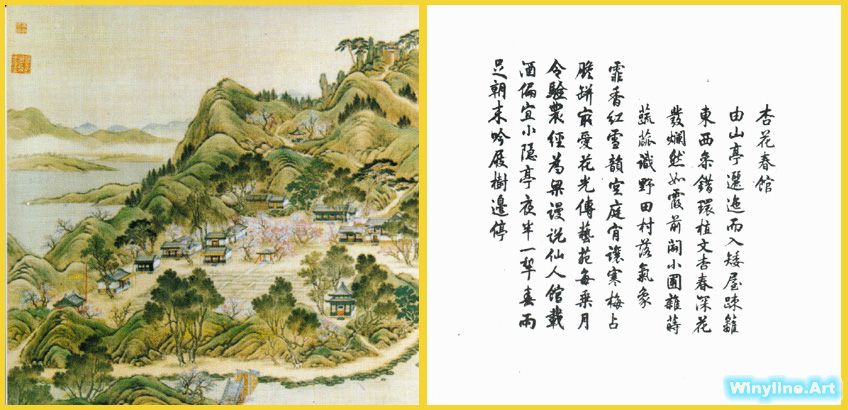 杏花春館
由山亭邐迤而入矮屋疎籬
東西叅錯環植文杏春深花
發爛然如霞前闢小圃雜蒔
蔬蓏識野田村落氣象
霏香紅雪韻空庭肯讓寒梅占
膽缾冣愛花光傳藝苑每乘月
令驗農經為梁謾説仙人館載
酒偏宜小隱亭夜半一犂春雨
足朝来吟屐樹邊停
Winyline.Art